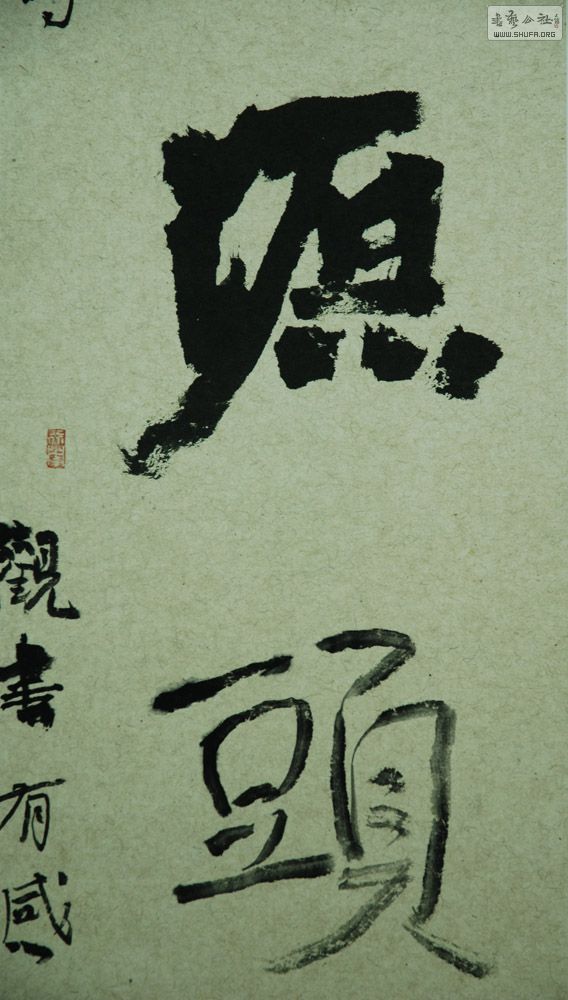 源頭
觀書有感
書藝公社
WWW.SHUFA.ORG